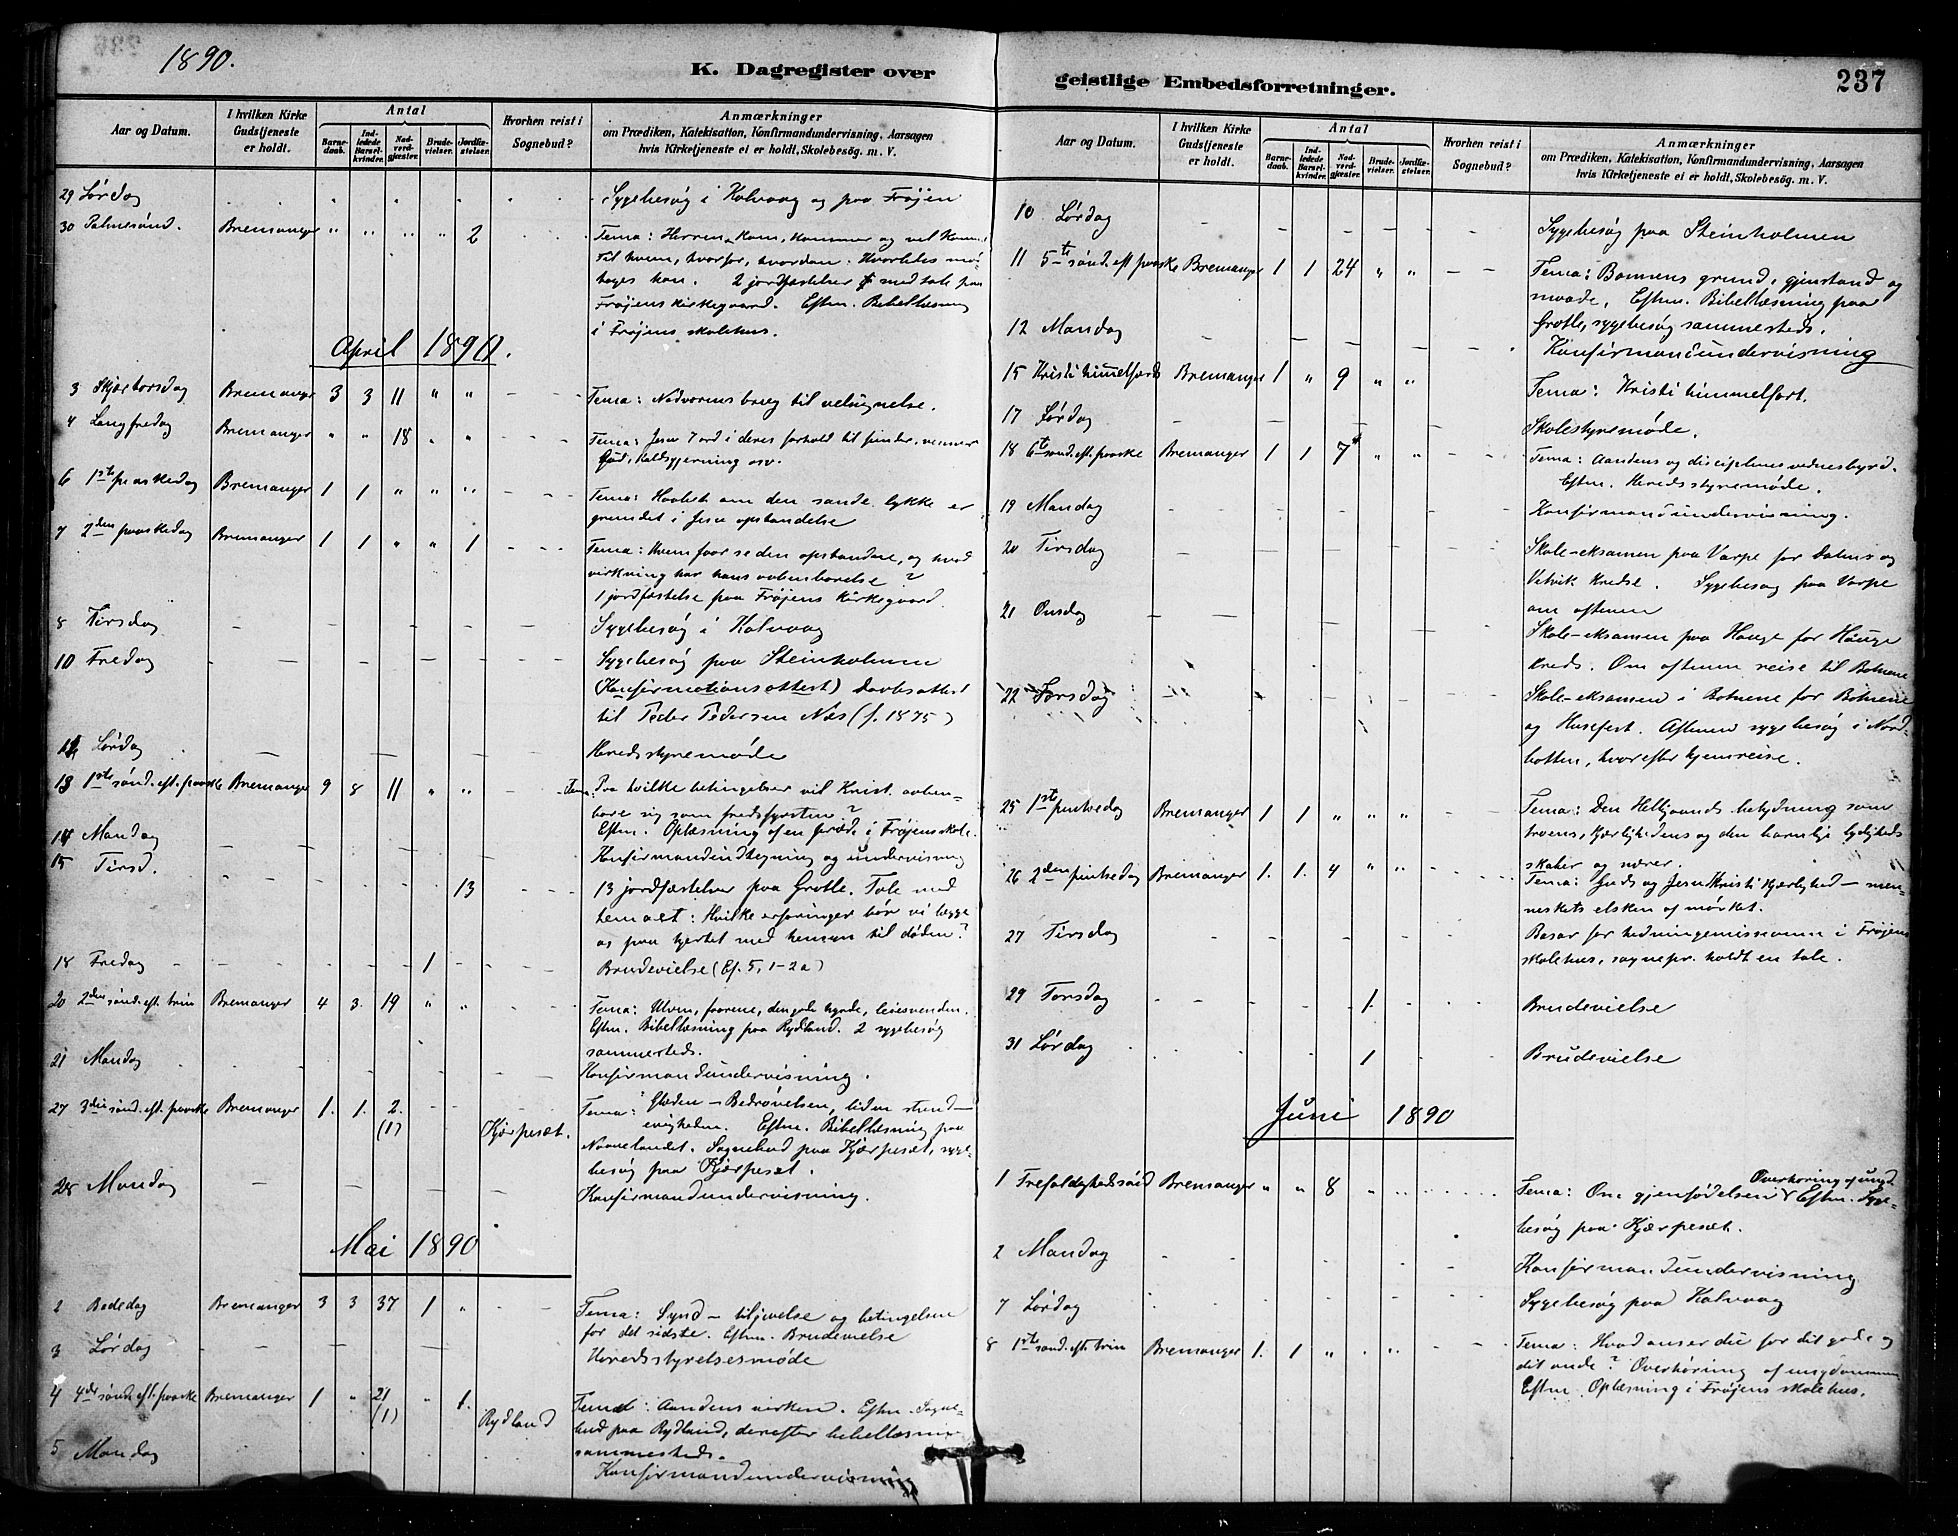 1890.
K. Dagregister over
Aar og Datum.
I hvilken Kirke Gudstjeneste er holdt.
Antal
Barnedaab.
Indledede Barselkvinder.
Nadverdgjæster.
Brudevielser.
Jordfæstelser.
Hvorhen reist i Sognebud?
Anmærkninger
om Prædiken, Katekisation, Konfirmandundervisning, Aarsagen
hvis Kirketjeneste ei er holdt, Skolebesøg. m. V.
29 Lørdag Sygebesøg i Kalvaag og paa Frøjen
30 Palmesønd. Bremanger " " " " 2 Tema: Herren kom, kommer og vil komme
til hvem, hvorfor, hvordan. Hvorledes mod-
tages han. 2 jordfæstelser med tale paa
Frøjens kirkegaard. Eftm. Bibellæsning
i Frøjens skolehus.
April 1890.
3 Skjærtorsdag Bremanger 3 3 11 " " Tema: Nadverens brug til velsignelse.
4 Langfredag Bremanger " " 18 " " Tema: Jesu 7 ord i deres forhold til fiender, venner
Gud, Kaldsgjerning osv.
6 1ste paaskedag Bremanger 1 1 " " " Tema: Haabet om den sande lykke er
grundet i Jesu opstandelse
7 2den paaskedag Bremanger 1 1 " " 1 Tema: Hvem faar se den opstandne, og hvad
virkning har hans aabenbarelse?
1 jordfæstelse paa Frøjens Kirkegaard.
8 Tirsdag Sygebesøg i Kalvaag
10 Fredag Sygebesøg paa Steinholmen
(Konfirmationsattest) Daabsattest
til Peder Pedersen Næs (f. 1875)
12 Lørdag Heredsstyremøde
13 1ste sønd. eft. paaske Bremanger 9 8 11 " " Tema: Paa hvilke betingelser vil Krist. aaben-
bare sig som fredsfyrsten?
Eftm. Oplæsning af en præd. i Frøjens skole.
14 Mandag Konfirmandindtegning og undervisning
15 Tirsd. 13 13 jordfæstelser paa Grotle. Tale med
temaet: Hvilke erfaringer bør vi lægge
os paa hjertet med hensyn til døden?
18 Fredag 1 Brudevielse (Ef. 5, 1-2a)
20 2den sønd. eft. trin Bremanger 4 3. 19 " " Tema: Ulven, faarene, den gode hyrde, leiesvenden.
Eftm. Bibellæsning paa Rydland. 2 sygebesøg
sammesteds.
21 Mandag Konfirmandundervisning.
27 3die sønd. eft. paaske Bremanger 1. 1. 2. (1) Kjærpesæt. Tema: Glæden – Bedrøvelsen, liden stund –
evigheden. Eftm. Bibellæsning paa
Sognebud paa Kjærpesæt, syge-
besøg paa Kjærpesæt.
28 Mandag Konfirmandundervisning.
Mai 1890
2 Bededag Bremanger 3 3 37 1 " Tema: Synd – tilgivelse og betingelsen
for det sidste. Eftm. Brudevielse
3 Lørdag Heredsstyrelsesmøde
4 4de sønd. eft. paaske Bremanger 1 " 21 (1) " 1. Rydland Tema: Aandens virken. Eftm. Sogne-
bud paa Rydland, derefter bibellæsning
sammesteds.
5 Mandag Konfirmandundervisning
geistlige Embedsforretninger.
237
Aar og Datum.
I hvilken Kirke Gudstjeneste er holdt.
Antal
Barnedaab.
Indledede Barselkvinder.
Nadverdgjæster.
Brudevielser.
Jordfæstelser.
Hvorhen reist i Sognebud?
Anmærkninger
om Prædiken, Katekisation, Konfirmandundervisning, Aarsagen
hvis Kirketjeneste ei er holdt, Skolebesøg. m. V.
10 Lørdag Sygebesøg paa Steinholmen
11 5te sønd. eft. paaske Bremanger 1 1 24 " " Tema: Bønnens grund, gjenstand og
maade. Eftm. Bibellæsning paa
Grotle, sygebesøg sammesteds.
12 Mandag Konfirmandundervisning
15 Kristi himmelfartsd. Bremanger 1 " 9 " " Tema: Kristi himmelfart.
17 Lørdag Skolestyremøde.
18 6te sønd. eft. paaske Bremanger 1 1 7 " " Tema: Aandens og disciplenes vidnesbyrd.
Eftm. Heredsstyremøde.
19 Mandag Konfirmandundervisning.
20 Tirsdag Skole-eksamen paa Varpe for Dalens og
Vetvik kredse. Sygebesøg paa Varpe
om aftenen
21 Onsdag Skole-eksamen paa Hauge for Hauge
kreds. Om aftenen reise til Botnene
22 Torsdag Skole-eksamen i Botnene for Botnene
og Husefest. Aftenen sygebesøg i Nord-
botten, hvorefter hjemreise.
25 1ste pintsedag Bremanger 1 1 " " " Tema: Den Helligaands betydning som
troens, kjærlighedens og den barnlige lydigheds
skaber og nærer.
26 2den pintsedag Bremanger 1. 1. 4 " " Tema: Guds og Jesu Kristi kjærlighed – men-
neskets elsken af mørket.
27 Tirsdag Basar for hedningemissionen i Frøjens
skolehus, sognepr. holdt en tale.
29 Torsdag 1. Brudevielse
31 Lørdag 1 Brudevielse
Juni 1890
1 Trefoldighedssønd Bremanger " " 8 " Tema: Om gjenfødelsen Overhøring af ungd. Eftm. Syge-
besøg paa Kjærpesæt.
2 Mandag Konfirmandundervisning
7 Lørdag Sygebesøg paa Kalvaag
8 1ste sønd. eft. trin Bremanger 1. 1 " " Tema: Hvad anser du for dit gode og
dit onde? Overhøring af ungdommen
Eftm. Oplæsning i Frøjens skolehus.